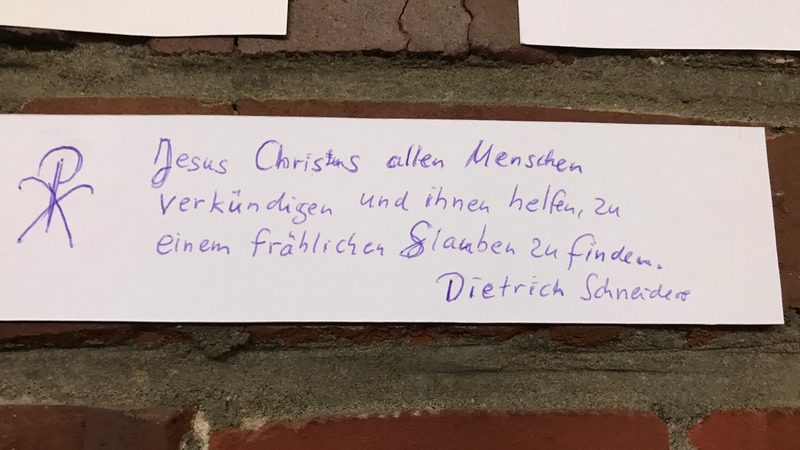 Jesus Christus allen Menschen
verkündigen und ihnen helfen, zu
einem fröhlichen Glauben zu finden.
Dietrich Schneider